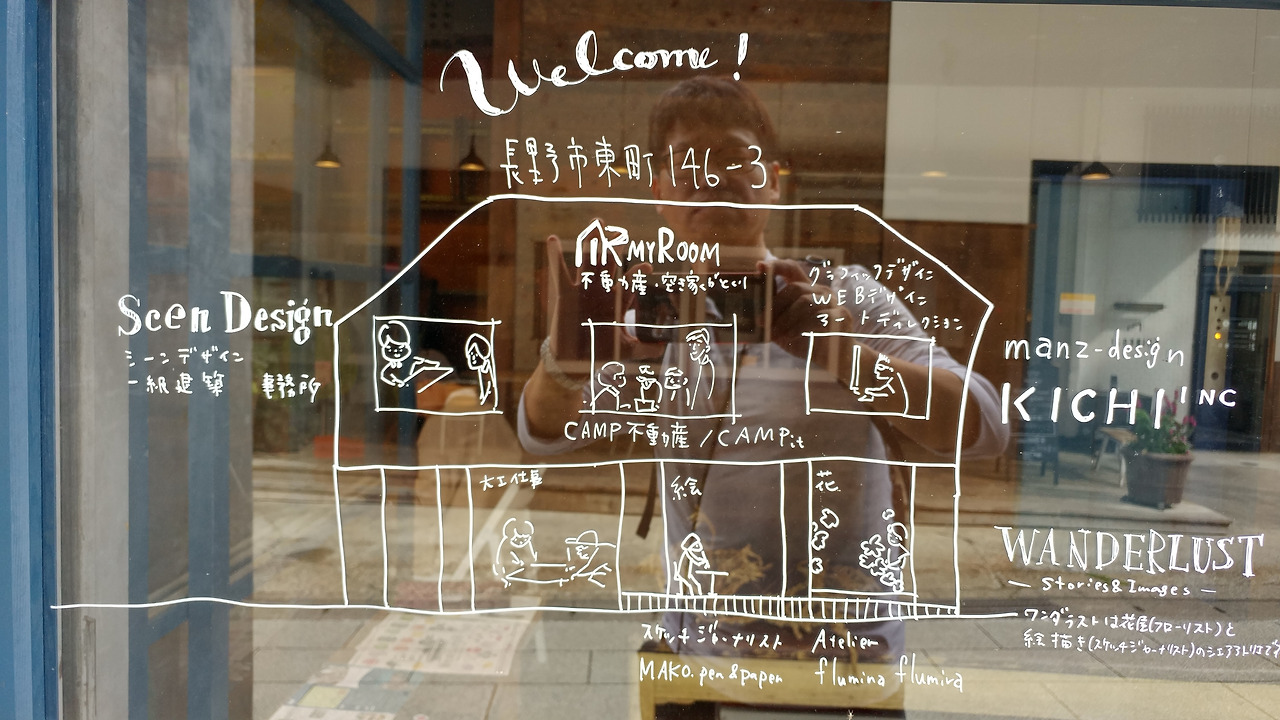 Welcome!
長野市東町146-3
MYROOM
不動産・空き家のことなら
グラフィックデザイン
WEBデザイン
アートディレクション
Scen Design
シーンデザイン
一級建築 事務所
manz-design
KICHI INC
CAMP不動産/CAMPit
大工仕事
絵
花
WANDERLUST
- Stories & Images -
ワンダラストは花屋(フローリスト)と
絵描き(スケッチジャーナリスト)のシェアアトリエです
スケッチジャーナリスト
MAKO.pen&paper
Atelier
flumina flumira